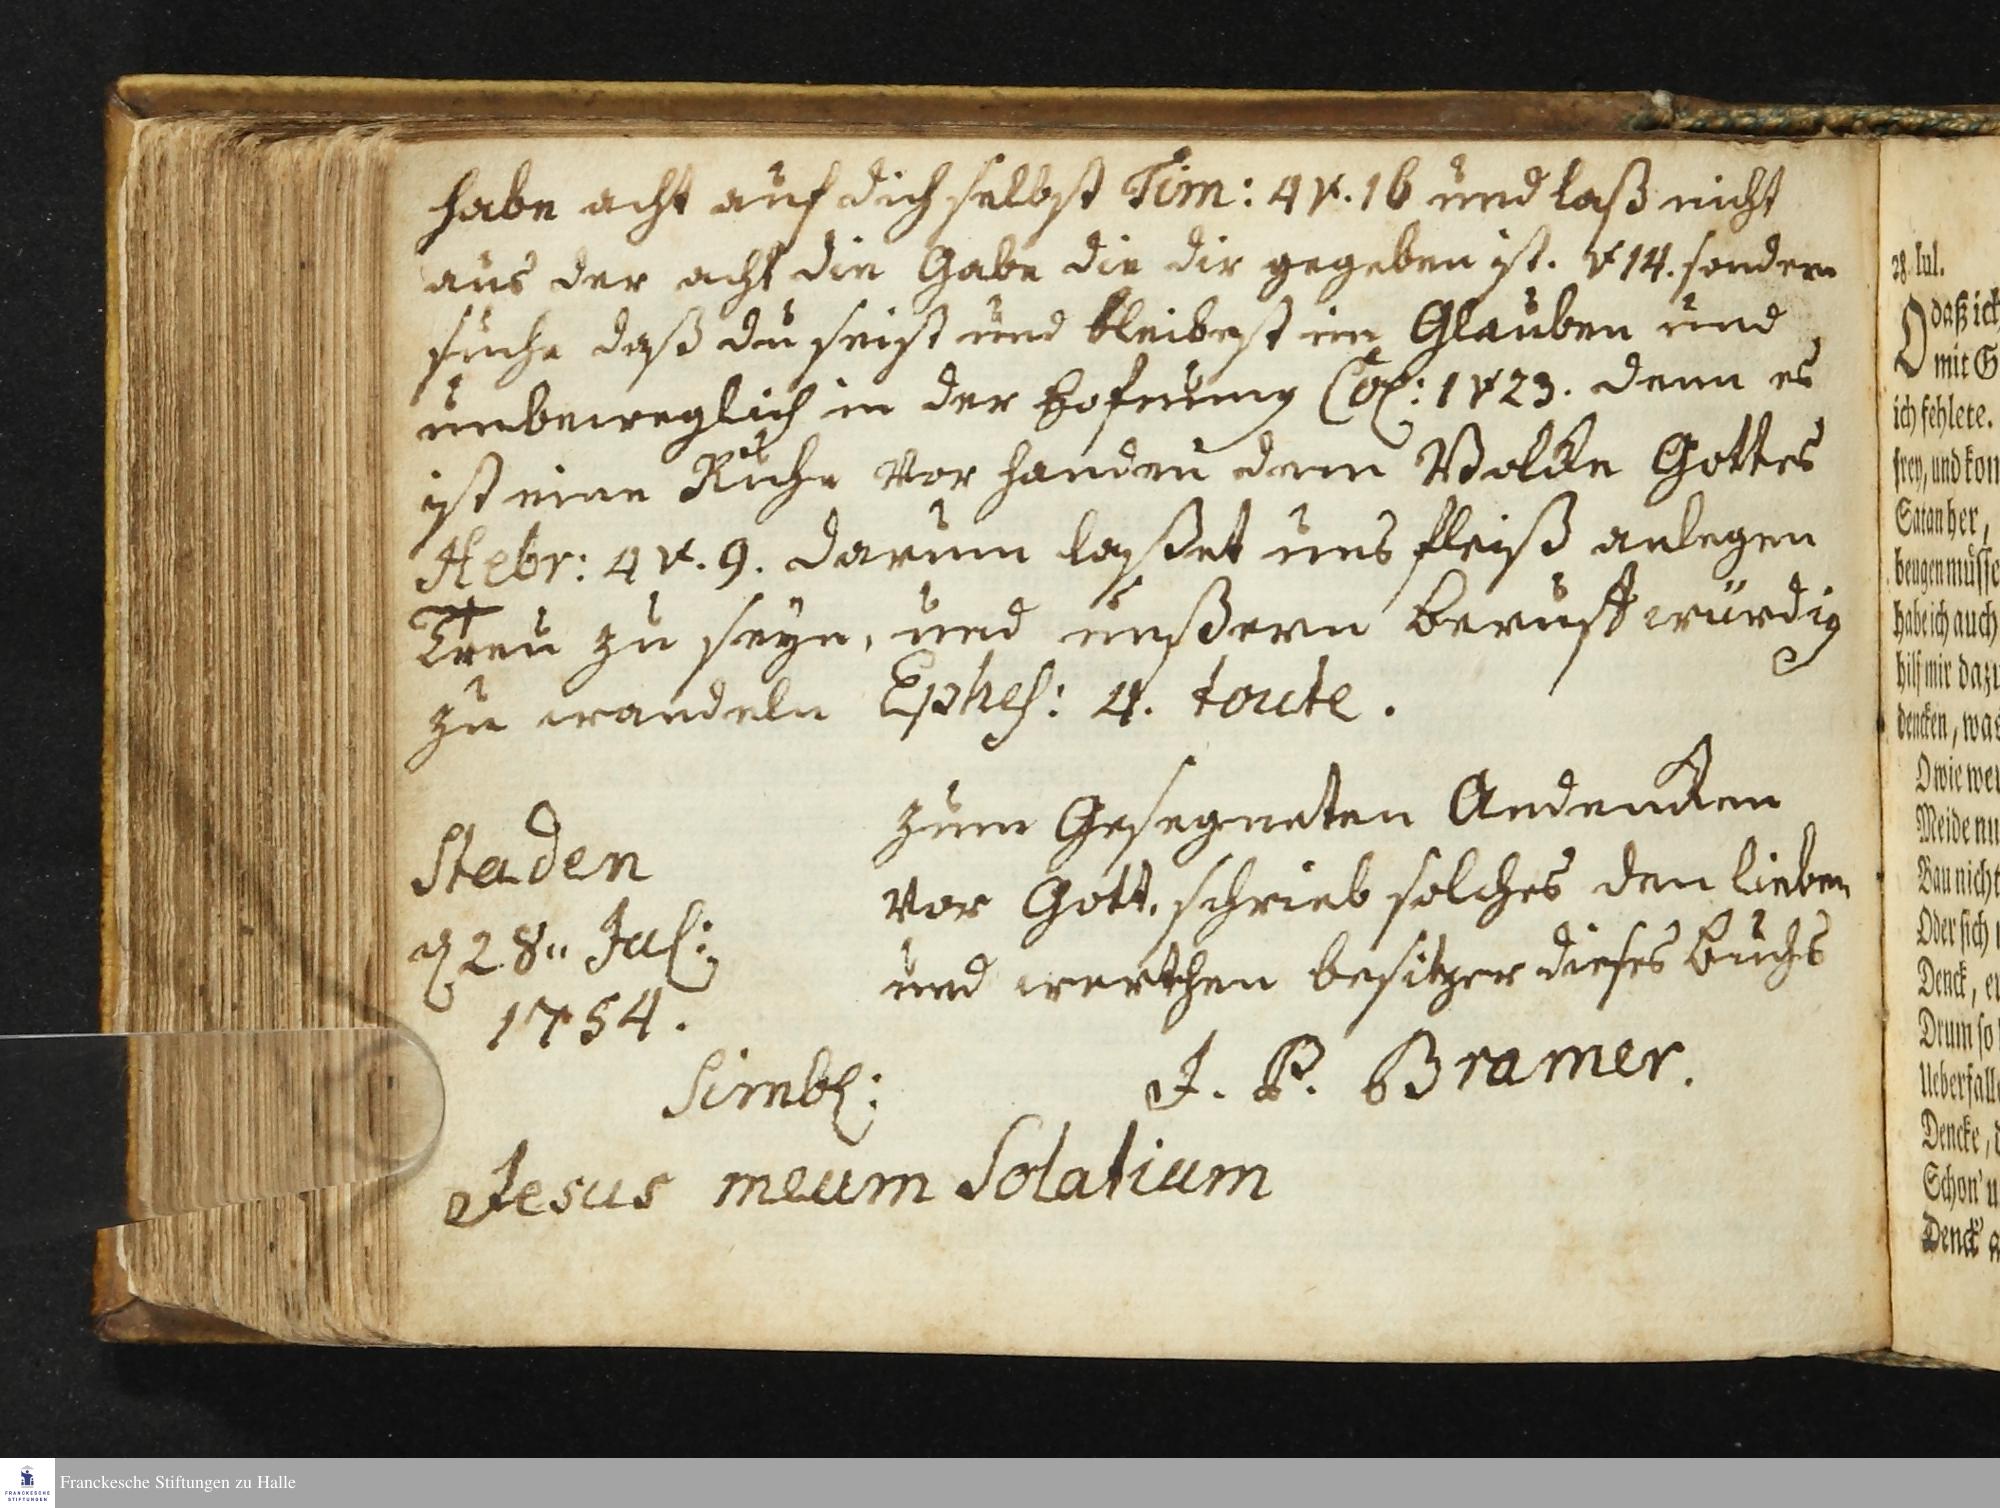 habe acht auf dich selbst Tim: 4 v. 16 und laß nicht
aus der acht die Gabe die dir gegeben ist. v 14. sondern
suche daß du seist und bleibest im Glauben und
unbeweglich in der Hofnung Col: 1 v 23. denn es
ist eine Ruhe vor handen dem Volcke Gottes
Hebr: 4 v. 9. darum laßet uns fleiß anlegen
Treu zu seyn, und unßern beruff würdig
zu wandeln Ephes: 4. toute.
zum Gesegneten Andencken
vor Gott, schrieb solches den lieben
und werthen besitzer dieses Buchs
J. P. Bramer.
Staden
d 28" Jul:
1754.
Simbl:
Jesus meum Solatium
28. Jul.
O daß ich
mit G
ich fehlete.
frey, und kom
Satan her,
beugen müsse
habe ich auch
hilf mir dazu
dencken, was
O wie wei
Meide nu
Bau nicht
Oder sich
Denck, er
Drum so
Ueberfall
Dencke, d
Schon' u
Denck'
Franckesche Stiftungen zu Halle
FRANCKESCHE
STIFTUNGEN